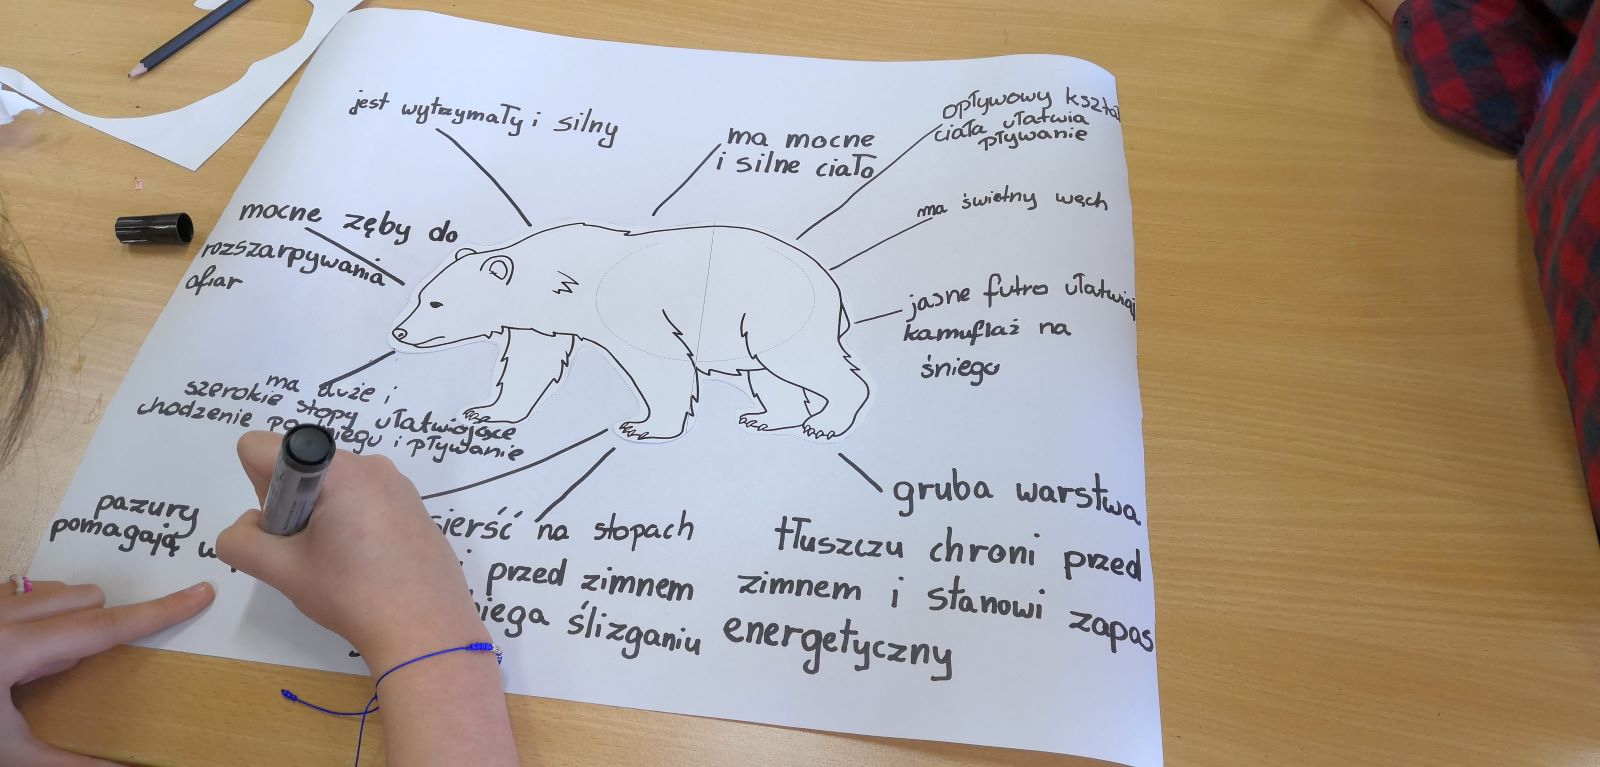 jest wytrzymały i silny
ma mocne
i silne ciało
opływowy
ciała ułatwia
pływanie
ma świetny węch
mocne zęby do
rozszarpywania
ofiar
jasne futro
kamuflaż na
śniegu
ma duże i
szerokie stopy ułatwiające
chodzenie i pływanie
pazury
pomagają
gruba warstwa
tłuszczu chroni przed
zimnem i stanowi zapas
energetyczny
na stopach
przed zimnem
ślizganiu